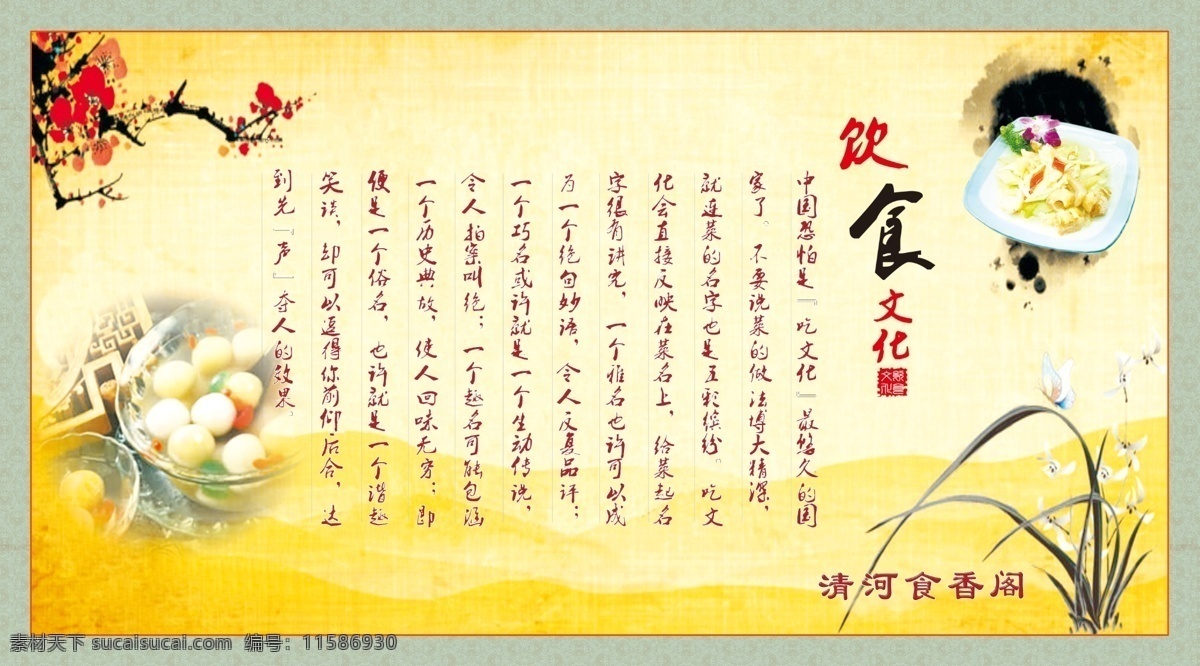 饮食文化
中国恐怕是『吃文化』最悠久的国
家了。不要说菜的做法博大精深，
就连菜的名字也是五彩缤纷。吃文
化会直接反映在菜名上，给菜起名
字很有讲究，一个雅名也许可以成
为一个绝句妙语，令人反复品评；
一个巧名或许就是一个生动传说，
令人拍案叫绝；一个趣名可能包涵
一个历史典故，使人回味无穷；即
便是一个俗名，也许就是一个谐趣
笑谈，却可以逗得你前仰后合，达
到先『声』夺人的效果。
清河食香阁
素材天下 sucaisucai.com 编号：11586930